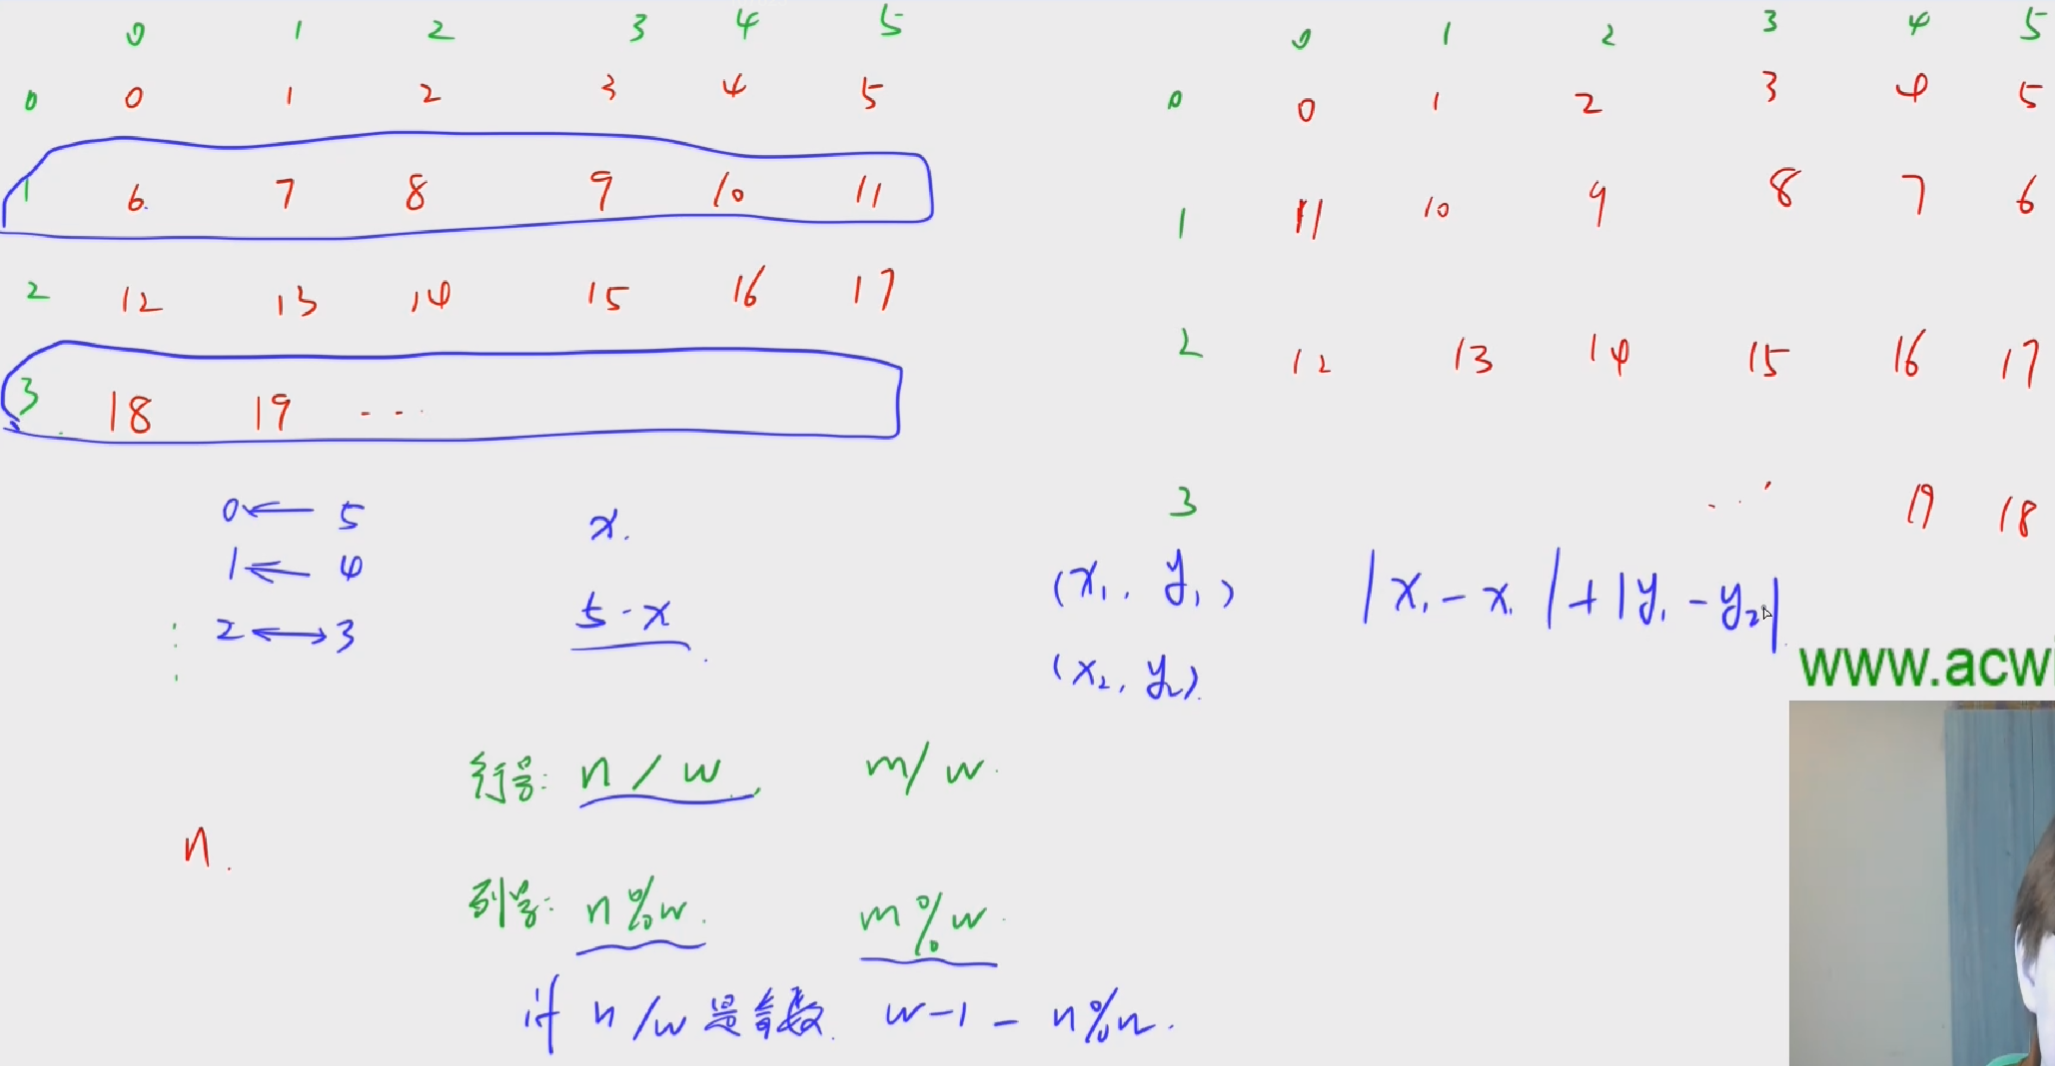 0 1 2 3 4 5
0 0 1 2 3 4 5
1 6 7 8 9 10 11
2 12 13 14 15 16 17
3 18 19 ...
0 ← 5
1 ← 4
2 ↔ 3
x.
5-x
0 1 2 3 4 5
0 0 1 2 3 4 5
1 11 10 9 8 7 6
2 12 13 14 15 16 17
3 ... 19 18
(x₁, y₁) |x₁-x.|+|y₁-y₂|
(x₂, y₂).
www.acwi
n.
行号: n/w, m/w.
列号: n%w. m%w.
if n/w是奇数. w-1-n%w.